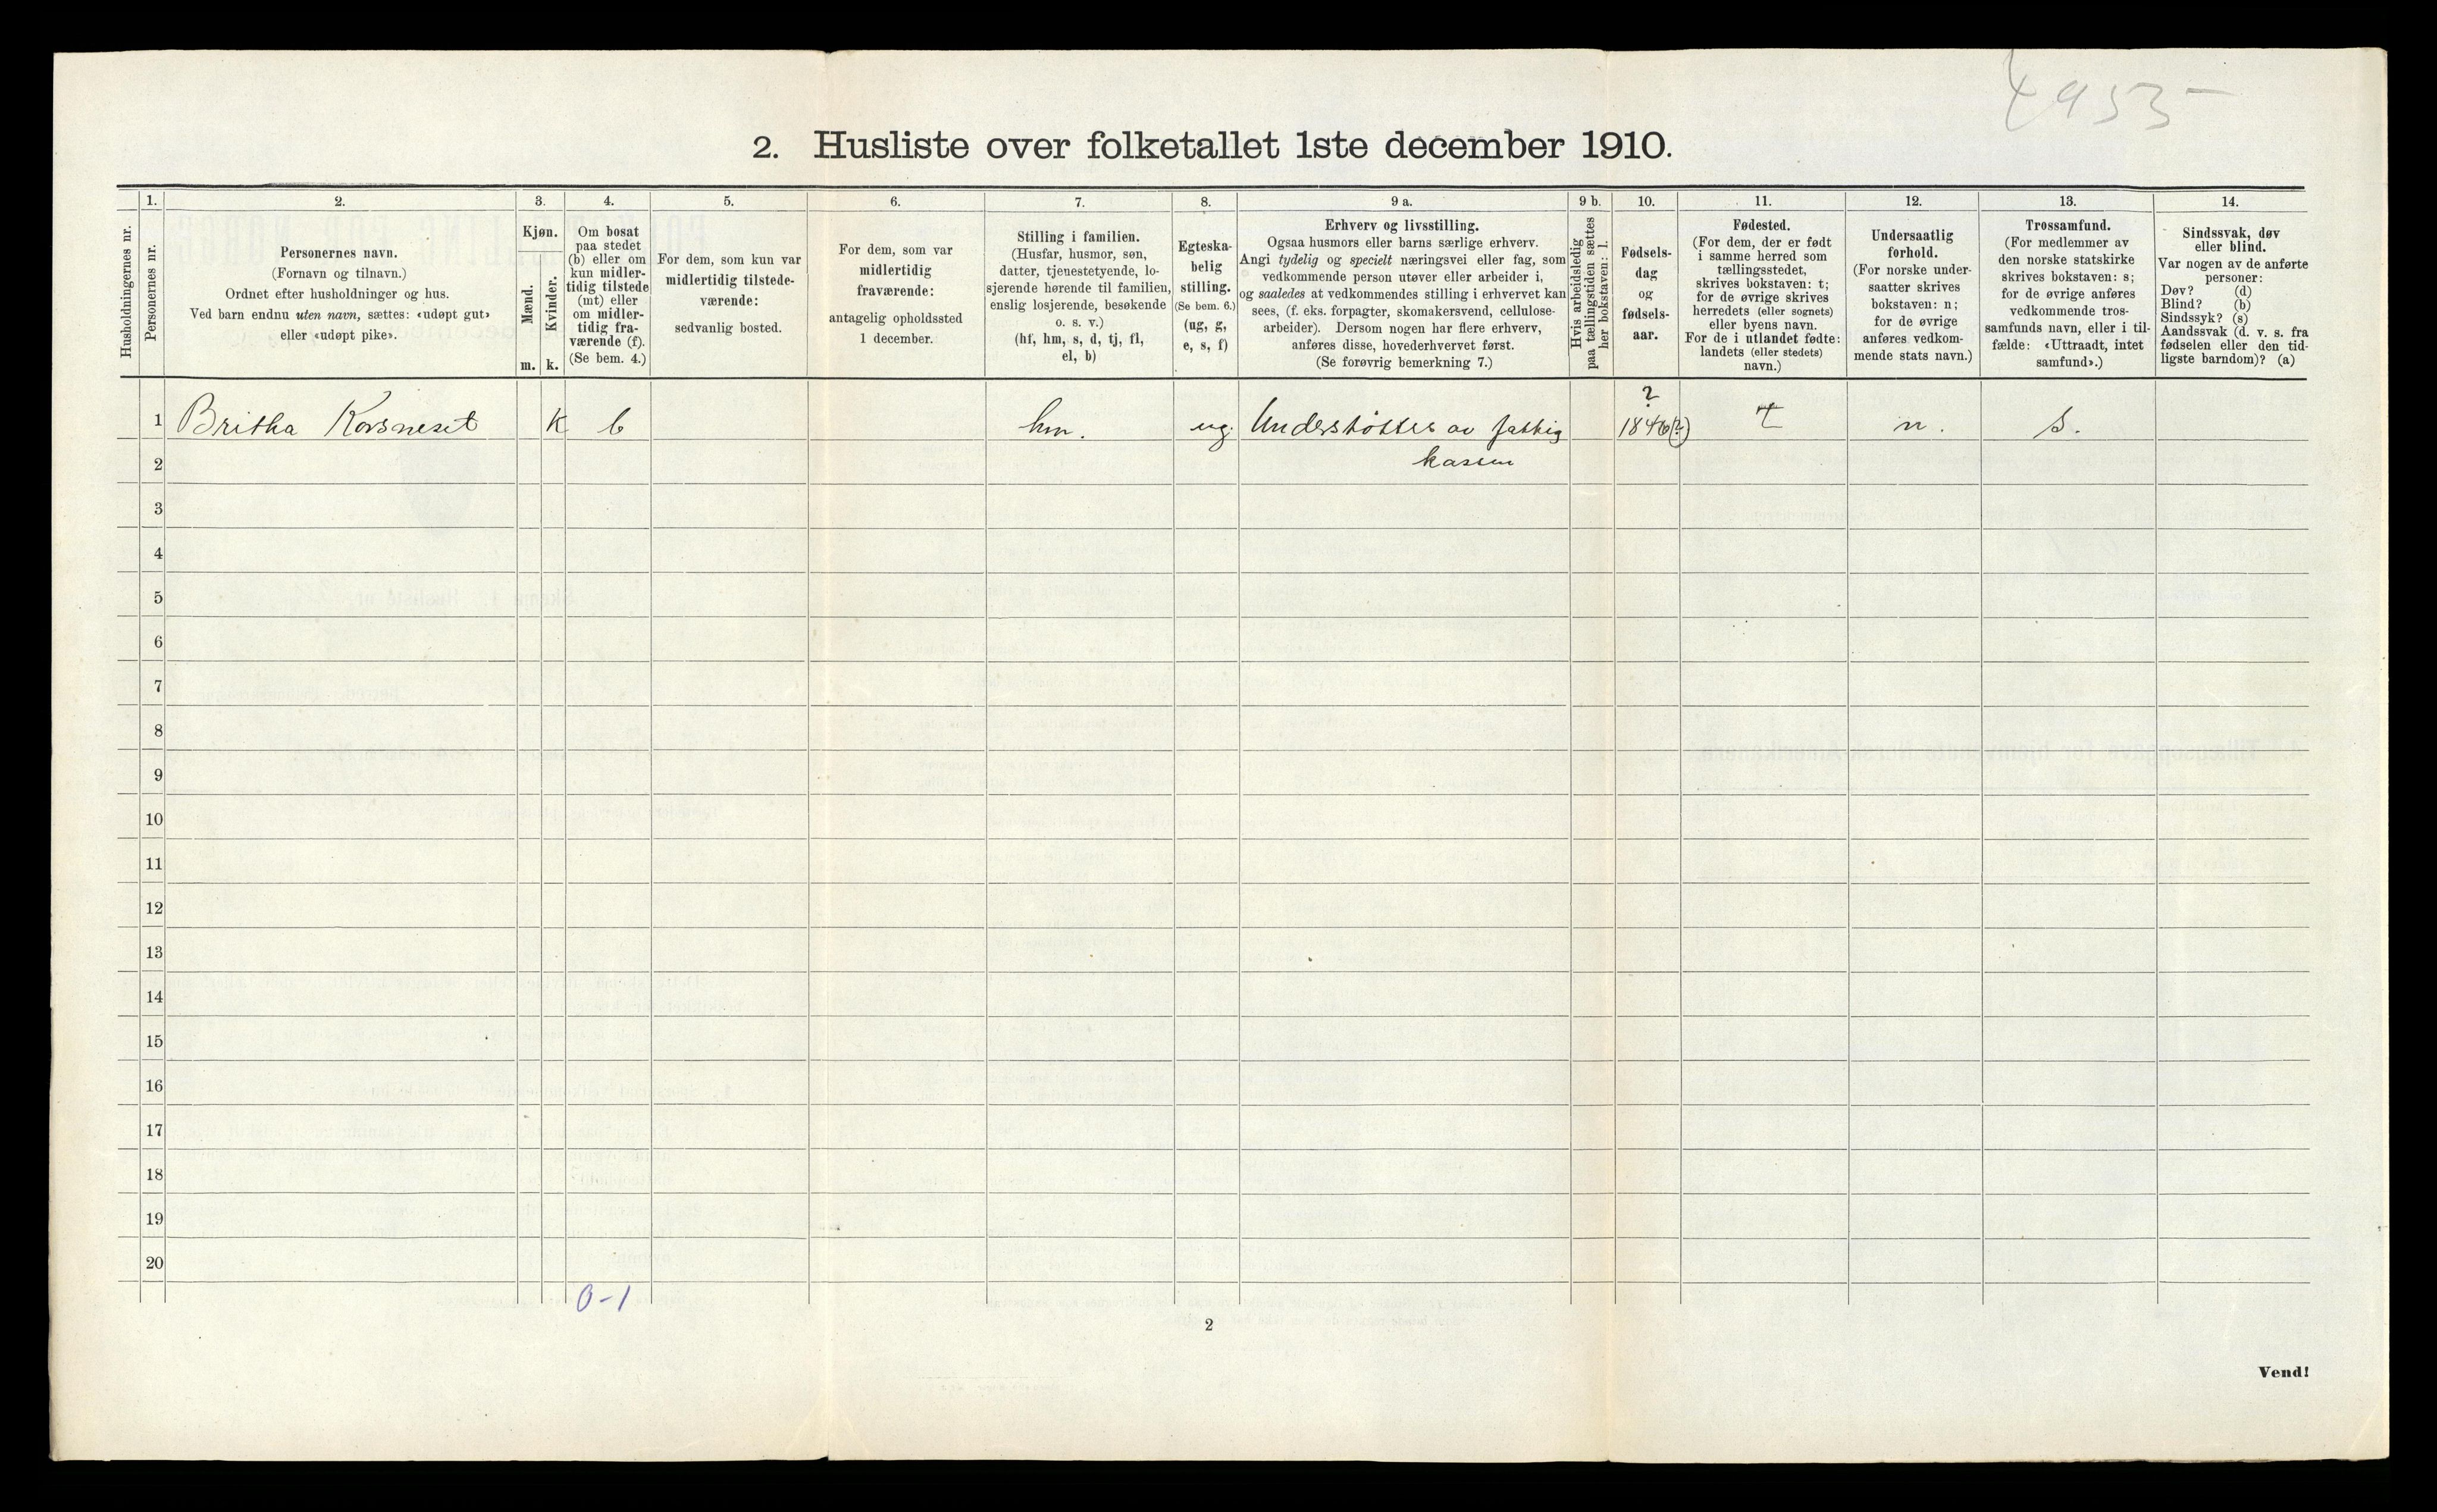 4953
2. Husliste over folketallet 1ste december 1910.
Husholdningernes nr.
1.
Personernes nr.
2.
Personernes navn.
(Fornavn og tilnavn.)
Ordnet efter husholdninger og hus.
Ved barn endnu uten navn, sættes: «udøpt gut»
eller «udøpt pike».
3.
Kjøn.
Mænd.
Kvinder.
m. k.
4.
Om bosat
paa stedet
(b) eller om
kun midler-
tidig tilstede
(mt) eller
om midler-
tidig fra-
værende (f).
(Se bem. 4.)
5.
For dem, som kun var
midlertidig tilstede-
værende:
sedvanlig bosted.
6.
For dem, som var
midlertidig
fraværende:
antagelig opholdssted
1 december.
7.
Stilling i familien.
(Husfar, husmor, søn,
datter, tjenestetyende, lo-
sjerende hørende til familien,
enslig losjerende, besøkende
o. s. v.)
(hf, hm, s, d, tj, fl,
el, b)
8.
Egteska-
belig
stilling.
(Se bem. 6.)
(ug, g,
e, s, f)
9 a.
Erhverv og livsstilling.
Ogsaa husmors eller barns særlige erhverv.
Angi tydelig og specielt næringsvei eller fag, som
vedkommende person utøver eller arbeider i,
og saaledes at vedkommendes stilling i erhvervet kan
sees, (f. eks. forpagter, skomakersvend, cellulose-
arbeider). Dersom nogen har flere erhverv,
anføres disse, hovederhvervet først.
(Se forøvrig bemerkning 7.)
9 b.
Hvis arbeidsledig
paa tællingstiden sættes
her bokstaven: l.
10.
Fødsels-
dag
og
fødsels-
aar.
11.
Fødested.
(For dem, der er født
i samme herred som
tællingsstedet,
skrives bokstaven: t;
for de øvrige skrives
herredets (eller sognets)
eller byens navn.
For de i utlandet fødte:
landets (eller stedets)
navn.)
12.
Undersaatlig
forhold.
(For norske under-
saatter skrives
bokstaven: n;
for de øvrige
anføres vedkom-
mende stats navn.)
13.
Trossamfund.
(For medlemmer av
den norske statskirke
skrives bokstaven: s;
for de øvrige anføres
vedkommende tros-
samfunds navn, eller i til-
fælde: «Uttraadt, intet
samfund».)
14.
Sindssvak, døv
eller blind.
Var nogen av de anførte
personer:
Døv? (d)
Blind? (b)
Sindssyk? (s)
Aandssvak (d. v. s. fra
fødselen eller den tid-
ligste barndom)? (a)
?
1 Britha Korsneset K b hm. ug. Understøttes av fattig 1846(?) t n. s.
2 kassen
3
4
5
6
7
8
9
10
11
12
13
14
15
16
17
18
19
20
0-1
2
Vend!